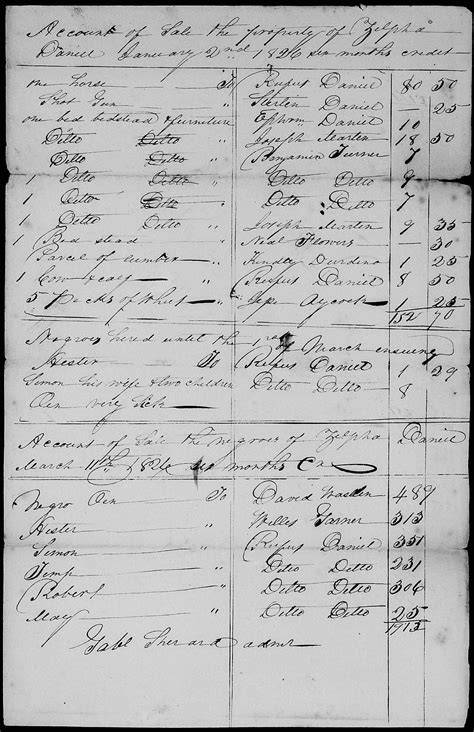 Account of Sale the property of Zelpha
Daniel January 2nd 1826 six months credit
one horse To Rufus Daniel 80 50
Shot Gun " Sterlen Daniel — 25
one bed bedstead & furniture " Ephrom Daniel 10
Ditto Ditto " Joseph Marten 18 50
Ditto Ditto " Benjamin Turner 7
1 Ditto Ditto " Ditto Ditto 9
1 Ditto Ditto " Ditto Ditto 7
1 Ditto Ditto " Joseph Marten 9 35
1 Bed stead " Neal Flowers — 30
Parcel of lumber " Kindry 1 25
1 Cow & calf " Rufus Daniel 8 50
5 Pecks of Wheat " Aycock 1 25
152 70
Negroes hired until the 1 of March ensueing
Hester To Rufus Daniel 1 29
Simon his wife & two children Ditto Ditto 8
Ben very sick
Account of Sale the negroes of Zelpha Daniel
March 11th 1826 six months Cr
Negro Ben To David 489
Hester " Willes Garner 313
Simon " Rufus Daniel 351
Temp " Ditto Ditto 231
Robert " Ditto Ditto 306
May " Ditto Ditto 25
1713
Gabl Sherard admr